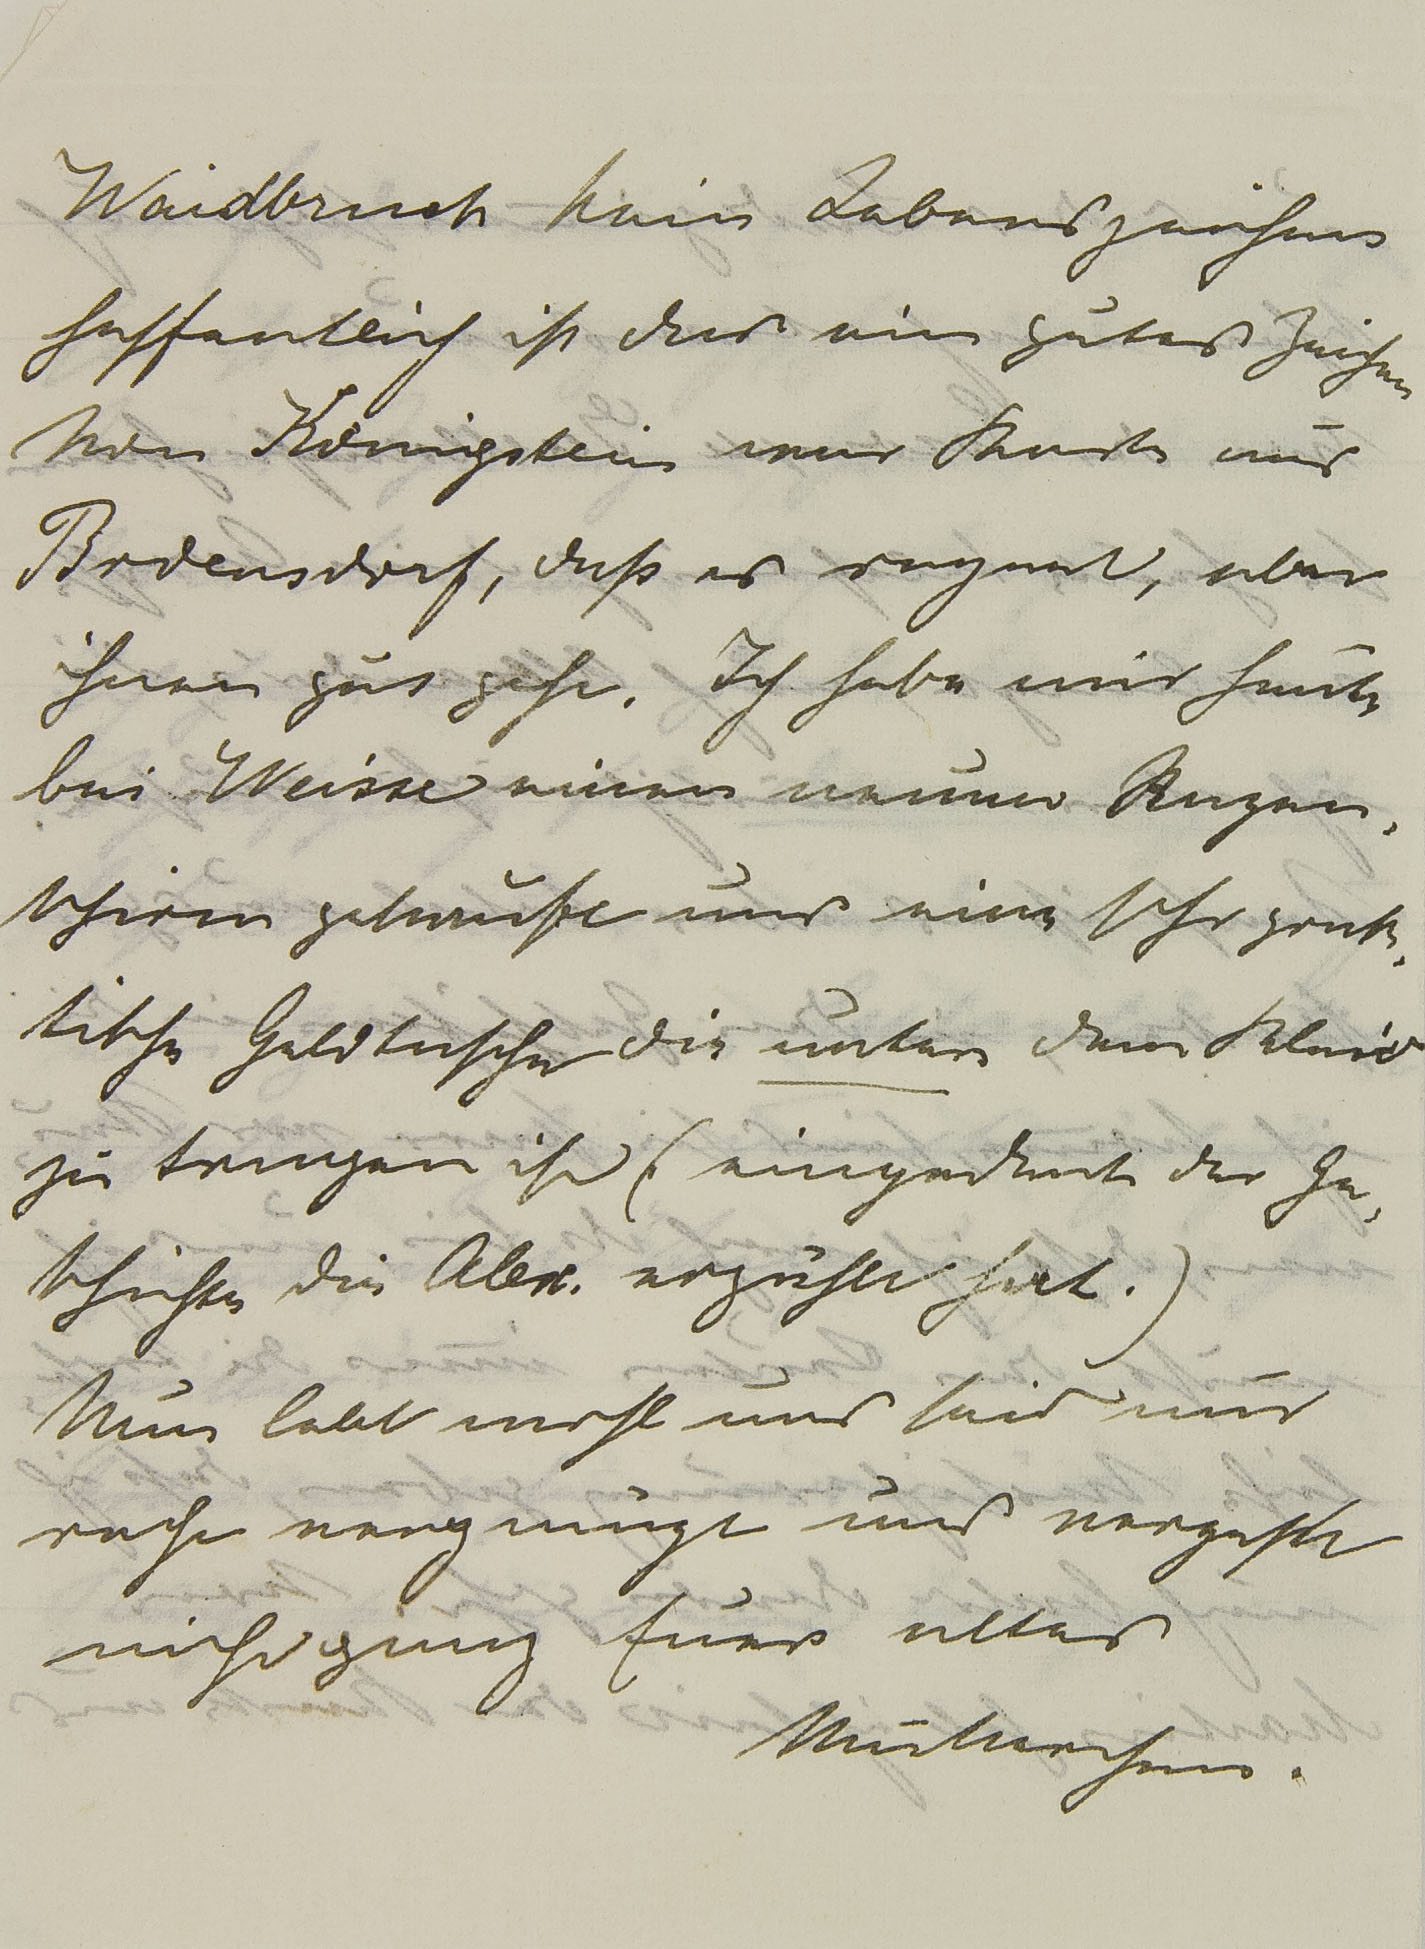 Waidbruck kein Lebenszeichen
hoffentlich ist das ein gutes Zeichen
von Königstein eine Karte aus
Bodensdorf, daß es regnet, aber
ihnen gut gehe. Ich habe mir heute
bei Weisse einen neuen Regen-
schirm gekauft und eine sehr prak-
tische Geldtasche die unter dem Kleid
zu tragen ist (eingedenk der Ge-
schichte die Alex. erzählt hat.)
Nun lebt wohl und seid nur
recht vergnügt und vergeßt
nicht ganz Euer altes
Mutterchen.